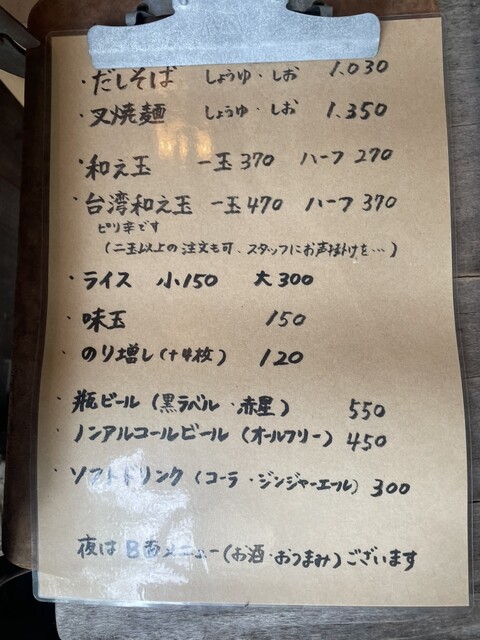 ・だしそば しょうゆ・しお 1.030
・叉焼麺 しょうゆ・しお 1.350
・和え玉 一玉370 ハーフ 270
・台湾和え玉 一玉470 ハーフ 370
ピリ辛です
(二玉以上の注文も可、スタッフにお声掛けを…)
・ライス 小150 大300
・味玉 150
・のり増し(+4枚) 120
・瓶ビール (黒ラベル・赤星) 550
・ノンアルコールビール (オールフリー) 450
・ソフトドリンク (コーラ・ジンジャーエール) 300
夜は B面メニュー(お酒・おつまみ)ございます